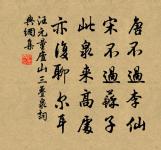 唐不遇李仙
宋不遇蘇子
此泉来高處
亦復聊尔耳
汪元量廬山三疊泉詞
典網集